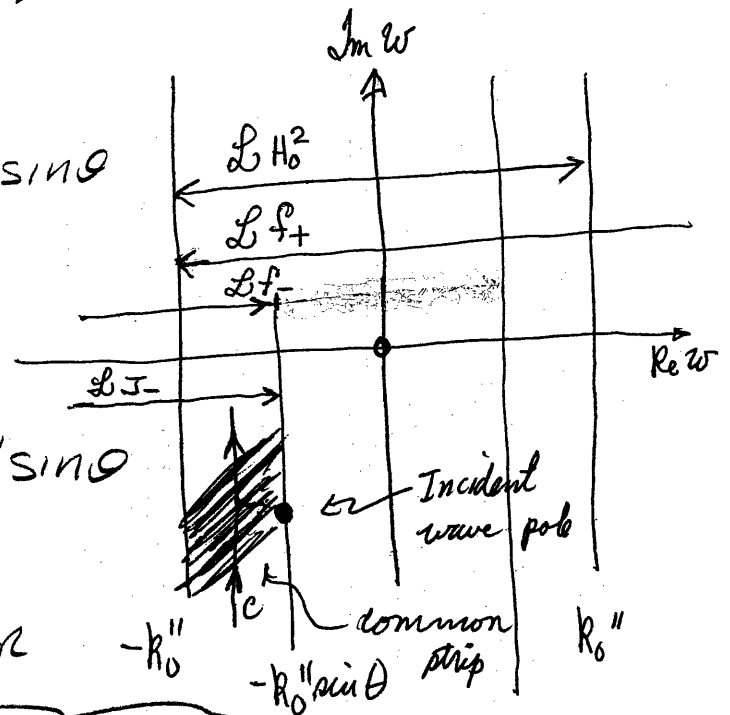 Im w
sinθ
ℒ H₀²
ℒ f₊
ℒ f₋
Re w
ℒ J₋
"sinθ
Incident
wave pole
C
common
strip
-k₀"
-k₀" sin θ
k₀"